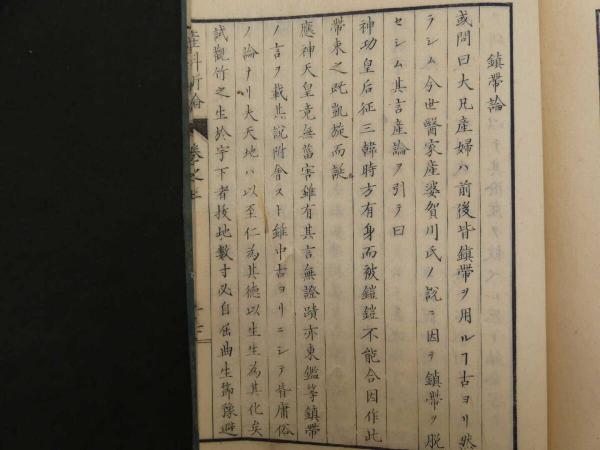 鎮帶論
或問曰大凡産婦ハ前後皆鎮帶ヲ用ルヿ古ヨリ然
ラシム今世醫家産婆賀川氏ノ說ニ因テ鎮帶ヲ脫
セシム其言産論ヲ引テ曰
神功皇后征三韓時方有身而被鎧鎧不能合因作此
帶束之旣凱旋而誕
應神天皇竟無菑害雖有其言無證蹟亦東鑑等鎮帶
ノ言ヲ載其說附會スト雖中古ヨリニシテ皆庸俗
ノ論ナリ夫天地ハ以至仁為其德以生生為其化矣
試觀竹之生於宇下者抜地數寸必自屈曲生節豫避
産科新論
卷之上